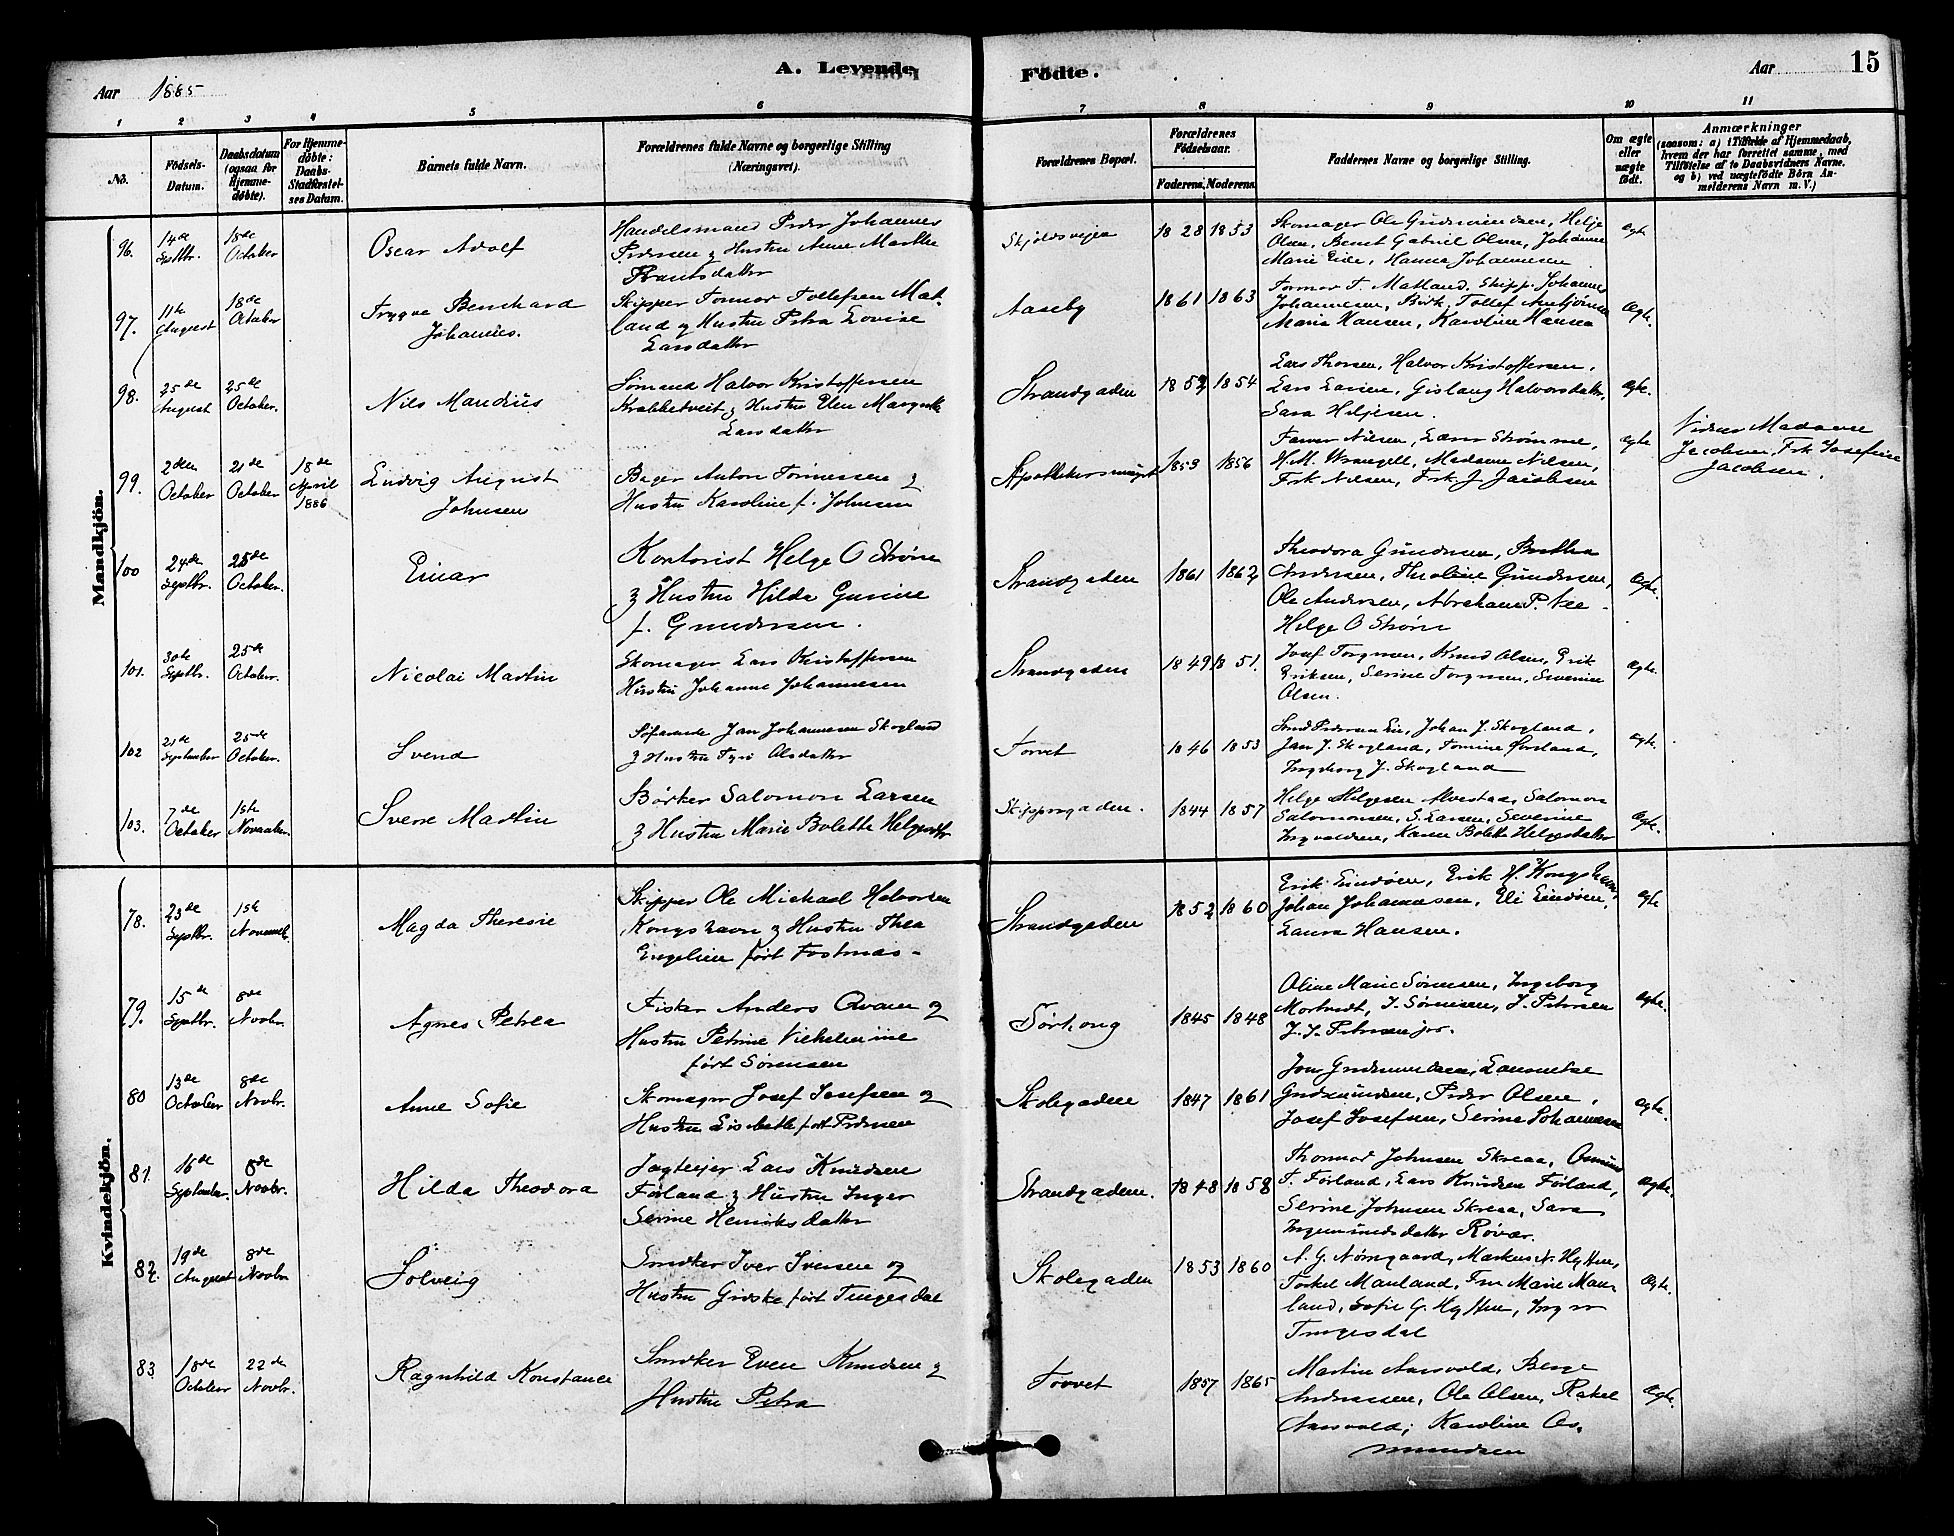 A. Levende Födte.
Aar 1885
Aar 15
1 2 3 4 5 6 7 8 9 10 11
No.
Födsels-Datum.
Daabsdatum (ogsaa for Hjemmedöbte).
For Hjemmedöbte: Daabs-Stadfæstelses Datum.
Barnets fulde Navn.
Forældrenes fulde Navne og borgerlige Stilling (Næringsvei).
Forældrenes Bopæl.
Forældrenes Födselsaar.
Faderens. Moderens.
Faddernes Navne og borgerlige Stilling.
Om ægte eller uægte födt.
Anmærkninger
(saasom: a) i Tilfælde af Hjemmedaab, hvem der har forrettet samme, med Tilföielse af to Daabsvidners Navne, og b) ved uægtefödte Börn Anmelderens Navn m. V.)
Mandkjön.
96. 14de Septbr. 18de October
Oscar Adolf
Handelsmand Peder Johannes
Pedersen & Hustru Anne Marthe
Frantsdatter
Skjoldsvejen
1828 1853
Skomager Ole Gudmundsen, Helje
Olsen, Bernt Gabriel Olsen, Johanne
Marie Eide, Hanna Johannesen
Ægte
97. 11te August 18de October
Trygve Bernhard
Johannes.
Skipper Tormor Tollefsen Mat-
land & Hustru Petra Lovise
Larsdatter
Aaseby
1861 1863
Tormor T. Matland, Skipp. Johannes
Johannesen, Tollef
Maria Hansen, Karoline Hansen
Ægte.
98. 25de August 25de October
Nils Maudius
Sømand Halvor Kristoffersen
Krakketveit & Hustru Elen Margrethe
Larsdatter
Strandgaden
1852 1854
Lars Thorsen, Halvor Kristoffersen,
Lars Larsen, Gislaug Halvorsdatter,
Sara Heljesen.
Ægte.
99. 2den October 21de October 18de April 1886
Ludvig August
Johnsen
Bager Anton Tønnessen &
Hustru Karoline f. Johnsen
1853 1856
Farver Nilsen, Lærer Strømme,
H.M. Wrangell, Madame Nilsen,
Frk Nilsen, Frk. J Jacobsen
Ægte
Vidner Madame
Jacobsen, Frk Josefine
Jacobsen.
100 24de Septbr. 25de October.
Einar
Kontorist Helge O Strøm
& Hustru Hilda Gurine
f. Gundersen.
Strandgaden
1861 1862
Theodora Gundersen, Berthea
Andersen, Theoline Gundersen,
Ole Andersen, Abraham P. Nee
Helge O Strøm
Ægte.
101. 30te Septbr. 25de October.
Nicolai Martin
Skomager Lars Kristoffersen
Hustru Johanne Johannesen
Strandgaden
1849 1851.
Josef Torgersen, Knud Olsen, Erik
Eriksen, Serine Torgersen, Severine
Olsen.
Ægte.
102 21de September 25de October.
Svend
Søfarende Jan Johannesen Skogland
& Hustru Tyri Olsdatter
Torvet
1846 1853
Johan J. Skogland,
Jan J. Skogland, Tomine Førland,
Ingeborg J. Skogland
Ægte.
103. 7de October 1ste November.
Sverre Martin
Bødker Salomon Larsen
& Hustru Marie Bolette Helgesdtr
Skippergaden.
1844 1857
Helge Helgesen Alvestaa, Salomon
Salomonsen, S. Larsen, Severine
Ingvaldsen, Karen Bolette Helgesdatter
Ægte.
Kvindekjön.
78. 23de Septbr. 1ste Novemb.
Magda Theresie
Skipper Ole Michael Halvorsen
Kongshavn & Hustru Thea
Engeline født Fostenæs
Strandgaden
1852 1860
Erik Eindøen, Erik H Kongshavn,
Johan Johannesen, Eli Eindøen,
Laura Hansen.
Ægte
79. 15de Septbr. 8de Novbr.
Agnes Petrea
Fisker Anders Qvalen og
Hustru Petrine Vilhelmine
født Sørensen
Sørhaug
1845 1848
Oline Marie Sørensen, Ingeborg
I. Sørensen, J. Petersen
J. J. Petersen jr.
Ægte.
80 13de October 8de Novbr.
Anne Sofie
Skomager Josef Josefsen og
Hustru Lisbeth født Pedersen
Skolegaden
1847 1861
Jon Gudmundsen,
Gudmundsen, Peder Olsen,
Josef Josefsen, Serine Johannesen
Ægte.
81. 16de September. 8de Novbr.
Hilda Theodora
Jagteejer Lars Knudsen
Førland & Hustru Inger
Serine Henriksdatter
Strandgaden.
1848 1858
Thormod Johnsen Skreaa, Osmund
T. Førland, Lars Knudsen Førland,
Serine Johnsen Skreaa, Sara
Ingemundsdatter Røvær.
Ægte.
82. 19de August 8de Novbr
Solveig
Snedker Iver Iversen og
Hustru Giske født Tungesdal
Skolegaden
1853 1860
A. G. Nørregaard, Markus N. Hytten,
Torkel Mauland, Fru Marie Mau-
land, Sofie G. Hytten, Inger
Tungesdal
Ægte.
83 18de October 22de Novbr.
Ragnhild Konstance
Snedker Even Knudsen &
Hustru Petra
Torvet
1857 1865
Martin Aarsvold, Berge
Andreassen, Ole Olsen, Rakel
Aarsvold, Karoline Os-
mundsen
Ægte.